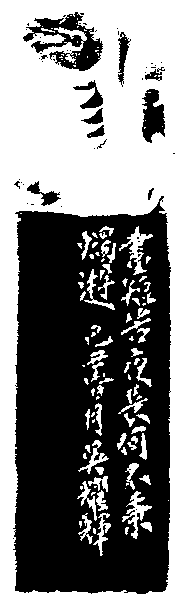 晝短苦夜長何不秉
燭遊 己丑春月吳耀輝